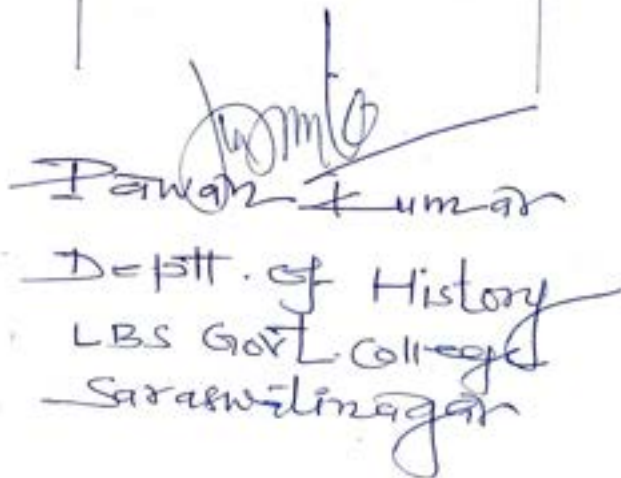 Pawan Kumar
Deptt. of History
LBS Govt. College
Saraswatinagar